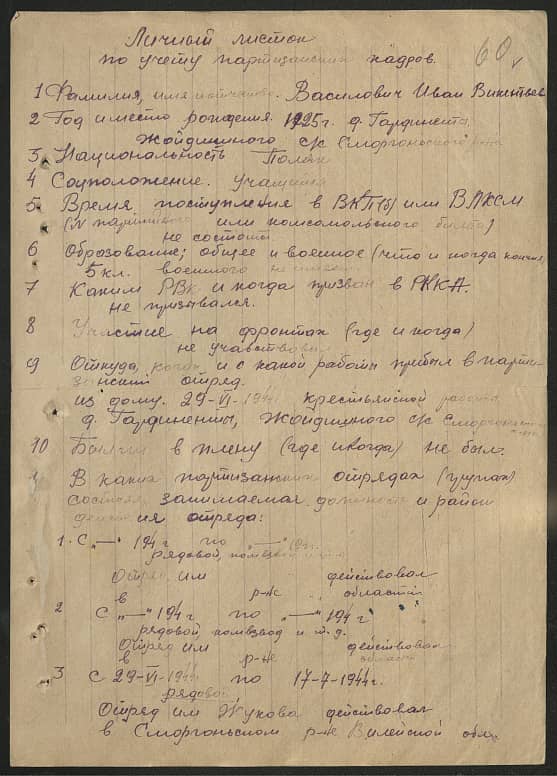 Личный листок
60
по учету партизанских кадров.
1 Фамилия, имя и отчество. Василович Иван Викентьев
2 Год и место рождения. 1925г. д. Гардиненты,
Жойдишного с/с Сморгоньского
3 Национальность Поляк
4 Соцположение. учащийся
5 Время поступления в ВКП(б) или ВЛКСМ
(№ партийного или комсомольского билета)
не состоял.
6 Образование; общее и военное (что и когда кончил)
5 кл. военного не имеет.
7 Каким РВК и когда призван в РККА.
не призывался.
8 Участие на фронтах (где и когда)
не участвовал
9 Откуда, когда и с какой работы прибыл в парти-
занский отряд.
из дому. 29-VI-1944 крестьянской работы
д. Гардиненты, Жойдишного с/с Сморгоньского
10 Был ли в плену (где и когда) не был.
В каких партизанских отрядах (группах)
состоял занимаемая должность и район
действия отряда:
1. С „—" 194 г по „—" 194 г.
рядовой, помвзвод
Отряд им действовал
в р-не области
2 С „—" 194 г по „—" 194 г
рядовой, помвзвод и т.д.
Отряд им действовал
в р-не области
3 С 29-VI-1944 по 17-7-1944г.
рядовой
Отряд им Жукова действовал
в Сморгоньском р-не Вилейской обл.